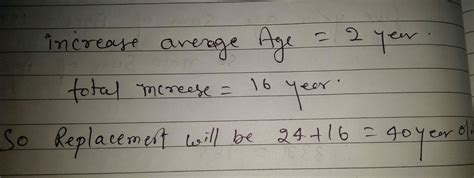 increase average Age = 2 year.
total increase = 16 year.
So Replacement will be 24+16 = 40 year ol